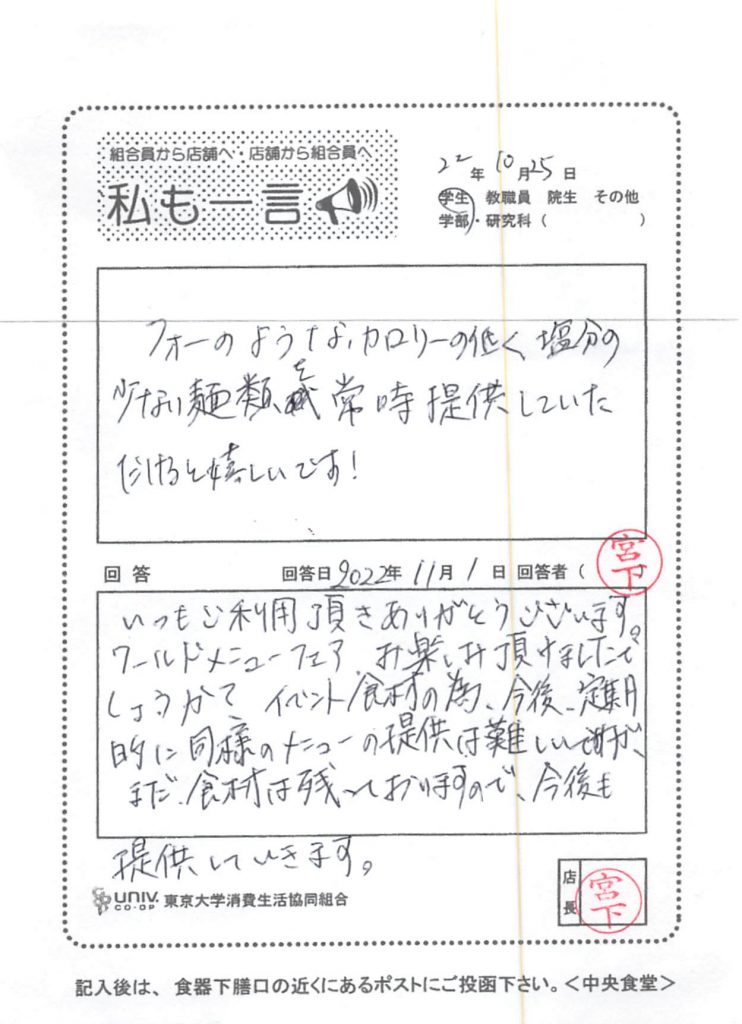 組合員から店舗へ・店舗から組合員へ
私も一言
22年10月25日
学生 教職員 院生 その他
学部・研究科( )
フォーのような、カロリーの低く、塩分の
少ない麺類を常時提供していた
だけると嬉しいです!
回答 回答日2022年11月1日 回答者( 宮下
いつもご利用頂きありがとうございます。
ワールドメニューフェア、お楽しみ頂けましたで
しょうか? イベント食材の為、今後、定期
的に同様のメニューの提供は難しいですが、
まだ、食材は残っておりますので、今後も
提供していきます。
UNIV. CO-OP 東京大学消費生活協同組合
店長 宮下
記入後は、食器下膳口の近くにあるポストにご投函下さい。<中央食堂>